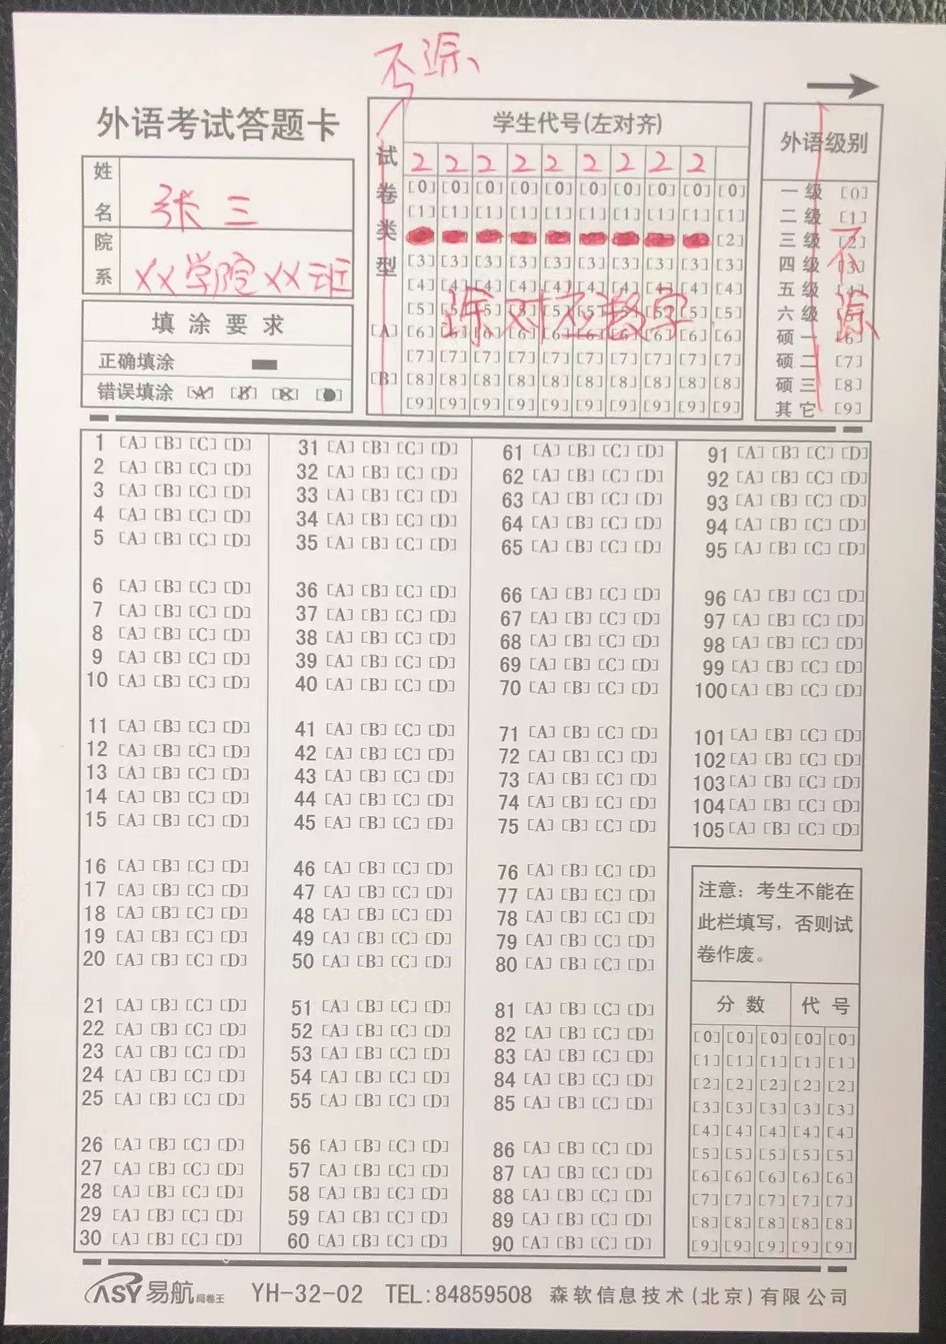 不涂
外语考试答题卡
姓名 张三
院系 XX学院XX班
填涂要求
正确填涂
错误填涂 [A] [B] [C] [D]
试卷类型
[A]
[B]
学生代号(左对齐)
2 2 2 2 2 2 2 2 2
[0] [0] [0] [0] [0] [0] [0] [0] [0] [0]
[1] [1] [1] [1] [1] [1] [1] [1] [1] [1]
[2]
[3] [3] [3] [3] [3] [3] [3] [3] [3] [3]
[4] [4] [4] [4] [4] [4] [4] [4] [4] [4]
[5] [5] [5] [5] [5] [5] [5] [5] [5] [5]
[6] [6] [6] [6] [6] [6] [6] [6] [6] [6]
[7] [7] [7] [7] [7] [7] [7] [7] [7] [7]
[8] [8] [8] [8] [8] [8] [8] [8] [8] [8]
[9] [9] [9] [9] [9] [9] [9] [9] [9] [9]
涂对应数字
外语级别
一级 [0]
二级 [1]
三级 [2]
四级 [3]
五级 [4]
六级 [5]
硕一 [6]
硕二 [7]
硕三 [8]
其它 [9]
不涂
1 [A] [B] [C] [D]
2 [A] [B] [C] [D]
3 [A] [B] [C] [D]
4 [A] [B] [C] [D]
5 [A] [B] [C] [D]
6 [A] [B] [C] [D]
7 [A] [B] [C] [D]
8 [A] [B] [C] [D]
9 [A] [B] [C] [D]
10 [A] [B] [C] [D]
11 [A] [B] [C] [D]
12 [A] [B] [C] [D]
13 [A] [B] [C] [D]
14 [A] [B] [C] [D]
15 [A] [B] [C] [D]
16 [A] [B] [C] [D]
17 [A] [B] [C] [D]
18 [A] [B] [C] [D]
19 [A] [B] [C] [D]
20 [A] [B] [C] [D]
21 [A] [B] [C] [D]
22 [A] [B] [C] [D]
23 [A] [B] [C] [D]
24 [A] [B] [C] [D]
25 [A] [B] [C] [D]
26 [A] [B] [C] [D]
27 [A] [B] [C] [D]
28 [A] [B] [C] [D]
29 [A] [B] [C] [D]
30 [A] [B] [C] [D]
31 [A] [B] [C] [D]
32 [A] [B] [C] [D]
33 [A] [B] [C] [D]
34 [A] [B] [C] [D]
35 [A] [B] [C] [D]
36 [A] [B] [C] [D]
37 [A] [B] [C] [D]
38 [A] [B] [C] [D]
39 [A] [B] [C] [D]
40 [A] [B] [C] [D]
41 [A] [B] [C] [D]
42 [A] [B] [C] [D]
43 [A] [B] [C] [D]
44 [A] [B] [C] [D]
45 [A] [B] [C] [D]
46 [A] [B] [C] [D]
47 [A] [B] [C] [D]
48 [A] [B] [C] [D]
49 [A] [B] [C] [D]
50 [A] [B] [C] [D]
51 [A] [B] [C] [D]
52 [A] [B] [C] [D]
53 [A] [B] [C] [D]
54 [A] [B] [C] [D]
55 [A] [B] [C] [D]
56 [A] [B] [C] [D]
57 [A] [B] [C] [D]
58 [A] [B] [C] [D]
59 [A] [B] [C] [D]
60 [A] [B] [C] [D]
61 [A] [B] [C] [D]
62 [A] [B] [C] [D]
63 [A] [B] [C] [D]
64 [A] [B] [C] [D]
65 [A] [B] [C] [D]
66 [A] [B] [C] [D]
67 [A] [B] [C] [D]
68 [A] [B] [C] [D]
69 [A] [B] [C] [D]
70 [A] [B] [C] [D]
71 [A] [B] [C] [D]
72 [A] [B] [C] [D]
73 [A] [B] [C] [D]
74 [A] [B] [C] [D]
75 [A] [B] [C] [D]
76 [A] [B] [C] [D]
77 [A] [B] [C] [D]
78 [A] [B] [C] [D]
79 [A] [B] [C] [D]
80 [A] [B] [C] [D]
81 [A] [B] [C] [D]
82 [A] [B] [C] [D]
83 [A] [B] [C] [D]
84 [A] [B] [C] [D]
85 [A] [B] [C] [D]
86 [A] [B] [C] [D]
87 [A] [B] [C] [D]
88 [A] [B] [C] [D]
89 [A] [B] [C] [D]
90 [A] [B] [C] [D]
91 [A] [B] [C] [D]
92 [A] [B] [C] [D]
93 [A] [B] [C] [D]
94 [A] [B] [C] [D]
95 [A] [B] [C] [D]
96 [A] [B] [C] [D]
97 [A] [B] [C] [D]
98 [A] [B] [C] [D]
99 [A] [B] [C] [D]
100 [A] [B] [C] [D]
101 [A] [B] [C] [D]
102 [A] [B] [C] [D]
103 [A] [B] [C] [D]
104 [A] [B] [C] [D]
105 [A] [B] [C] [D]
注意：考生不能在
此栏填写，否则试
卷作废。
分数 代号
[0] [0] [0] [0] [0]
[1] [1] [1] [1] [1]
[2] [2] [2] [2] [2]
[3] [3] [3] [3] [3]
[4] [4] [4] [4] [4]
[5] [5] [5] [5] [5]
[6] [6] [6] [6] [6]
[7] [7] [7] [7] [7]
[8] [8] [8] [8] [8]
[9] [9] [9] [9] [9]
ASY易航阅卷王 YH-32-02 TEL:84859508 森软信息技术(北京)有限公司